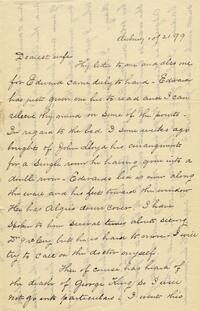 Dearest wife
Thy letter to me and also one
for Edward came duly to hand. Edward
has just given me his to read and I can
relieve thy mind on some of the points.
In regard to the bed I some weeks ago
bought of John Lloyd his arrangement
for a single room he having gone into a
double room. Edwards lies is even along
the wall and his feet toward the window
He has Algies down cover. I have
spoken to him several times about seeing
Dr but he is hard to move. I will
try to call on the doctor myself.
Thee of course has heard of
the death of George King so I will
not go into particulars. I went this